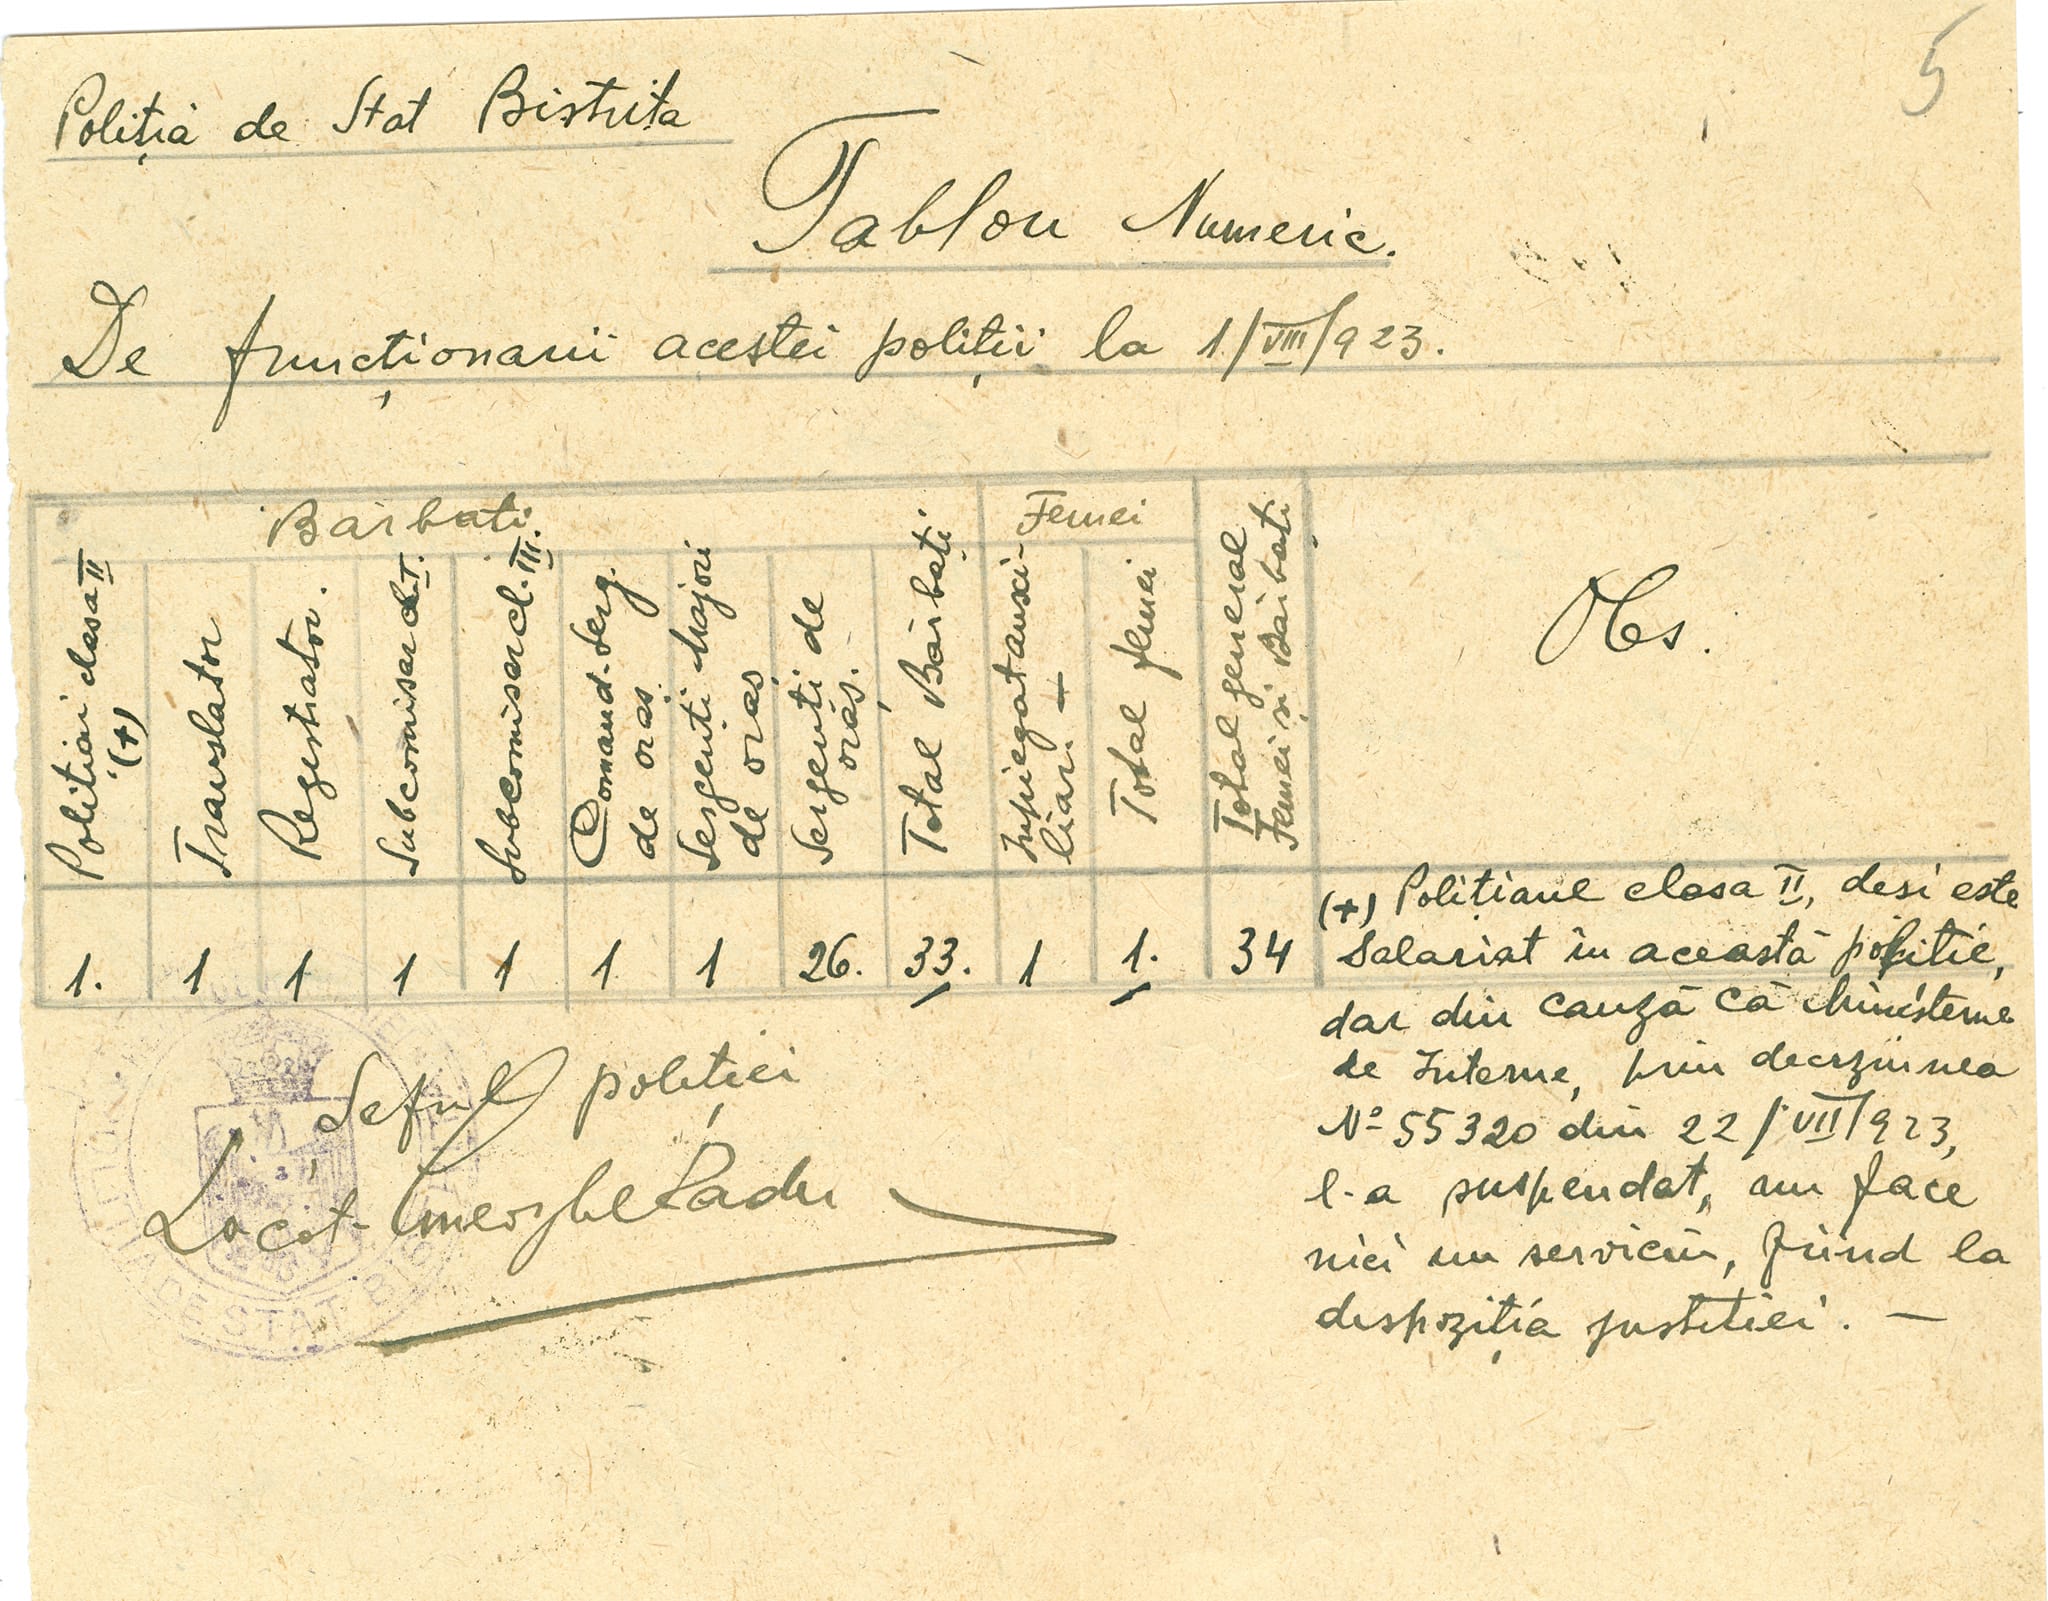 5
Poliția de Stat Bistrița
Tablou Numeric.
De funcționarii acestei poliții la 1/VIII/923.
Bărbați
Femei
Polițiai clasa II (+)
Translator
Registrator.
Subcomisar cl. I.
Subcomisar cl. III.
Comand. Serg. de oraș.
Sergenti Majori de oraș
Sergenti de oraș.
Total Bărbați
Impiegat auxiliari
Total femei
Total general Femei și Bărbați
Obs.
1. 1 1 1 1 1 1 26. 33. 1 1. 34
(+) Polițiaiul clasa II, desi este
salariat in această politie,
dar din cauză că Ministerul
de Interne, prin deciziunea
No 55320 din 22/VII/923,
l-a suspendat, nu face
nici un serviciu, fiind la
dispoziția justitiei. —
Șeful poliției
Locot. Gheorghe Radu
POLIȚIA DE STAT BIS